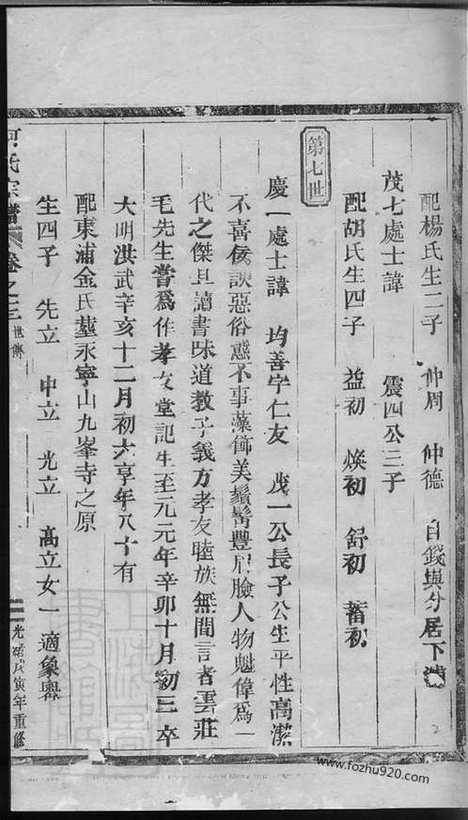 配楊氏生二子 仲周 仲德 自錢與分居下
茂七處士諱 震四公三子
配胡氏生四子 益初 煥初 舒初 蓄初
第七世
慶一處士諱 均善字仁友 茂一公長子公生平性高潔
不喜佞諛惡俗惑不事藻飾美鬚髯豐臉人物魁偉為一
代之傑且讀書味道教子義方孝友睦族無間言者雲莊
毛先生嘗為作孝友堂記生至元元年辛卯十月初三卒
大明洪武辛亥十二月初六享年八十有
配東浦金氏塟永寧山九峯寺之原
生四子 先立 中立 光立 高立女一適象嶴
氏宗譜 卷之三 世傳
光緒戊寅年重修
www.fozhu920.com